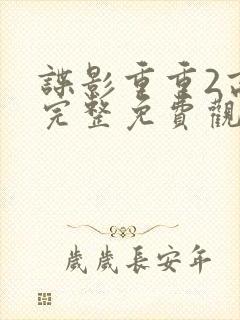 諜影重重2高
完整免費觀
歲歲長安年